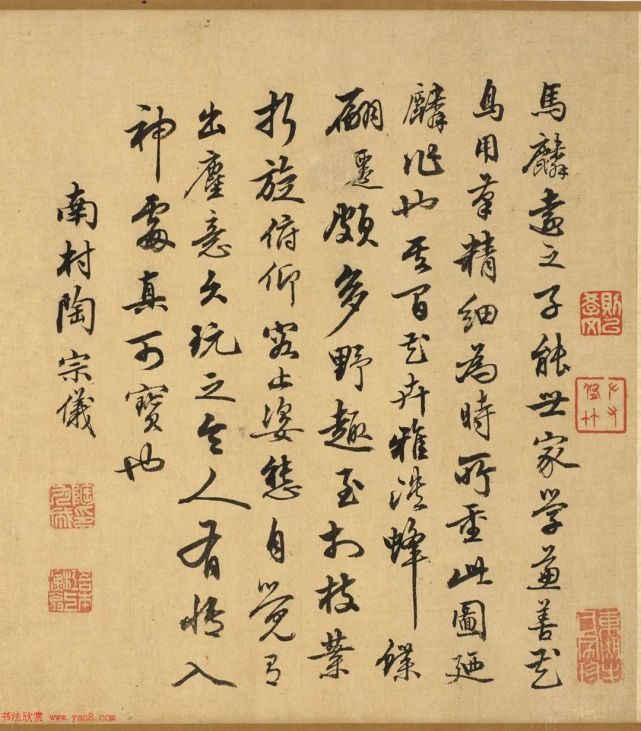 馬麟遠之子能世家学兼善花
鳥用筆精細為時所重此圖廼
麟作也其間花卉雅淡蜂蝶
翩躚頗多野趣至於枝葉
折旋俯仰容止姿態自覺有
出塵意久玩之令人有情入
神處真可寶也
南村陶宗儀
书法欣赏 www.yac8.com